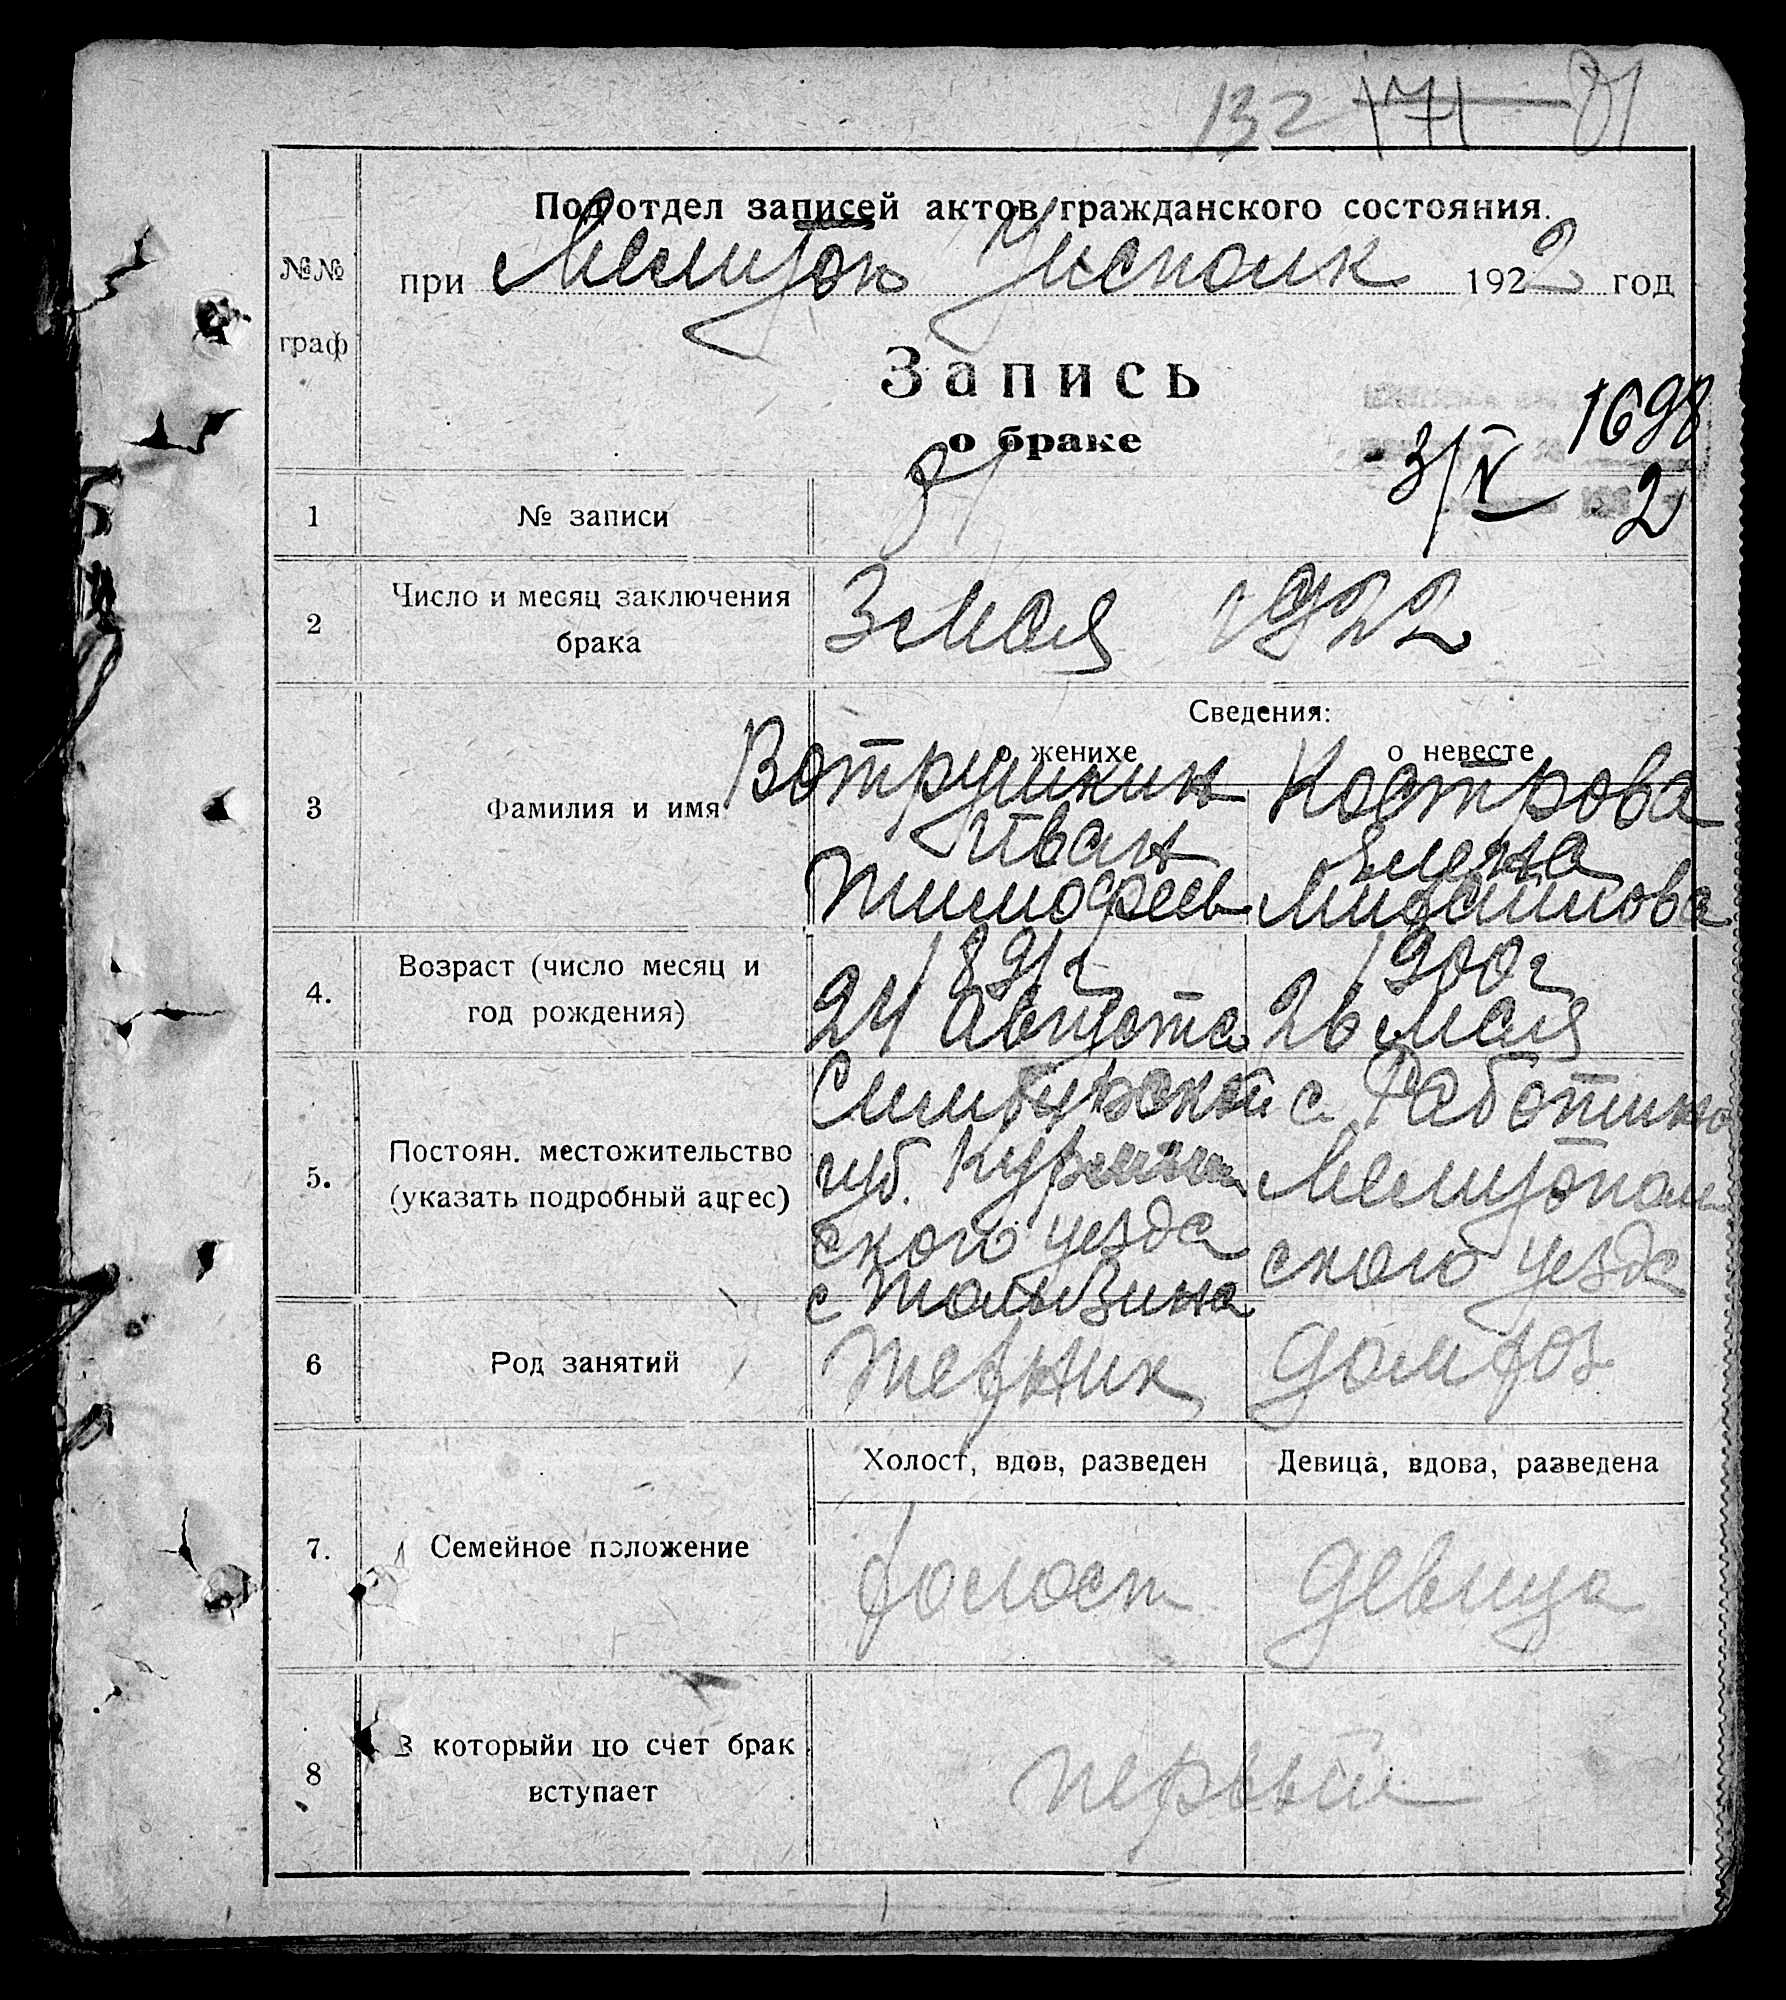 132 171 81
Подотдел записей актов гражданского состояния.
№№
граф
при Мелитоп Уисполк 1922 год
Запись
о браке
1698
3/V 2
1 № записи 81
2 Число и месяц заключения
брака
3 мая 1922
Сведения:
о женихе о невесте
3 Фамилия и имя
Вотрушкин Кострова
Иван Елена
Тимофеев Михайлова
4. Возраст (число месяц и
год рождения)
1891 г 1900 г
24 Августа 26 мая
5. Постоян. местожительство
(указать подробный адрес)
Симбирской с. Работино
губ.
ского уезда ского уезда
6 Род занятий
домхоз
Холост, вдов, разведен Девица, вдова, разведена
7. Семейное положение
холост девица
8 В которыйи по счет брак
вступает
первый